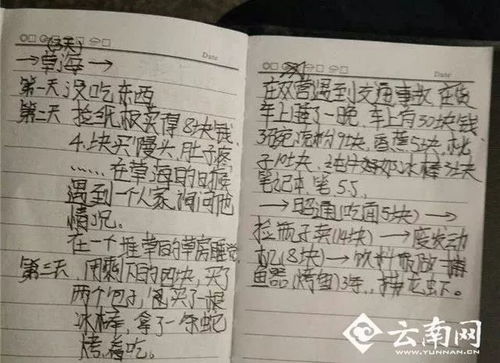 (3天)
→草海→
Date
第一天没吃东西
第二天捡纸板卖得8块钱
4块买馒头,肚子疼
……在草海的时候
遇到一个人家询问他
情况。
在一个堆草的草房睡觉
第三天 用剩下的四块,买了
两个包子,买了一根
冰棒,拿了一条蛇
烤着吃。
Date
在双营遇到交通事故,在货
车上睡了一晚,车上有30块钱
9块,香蕉5块,桃
子 块,冰棒3块
笔记本,笔5.5
→昭通(吃面5块)→
捡瓶子卖(14块)→废发动
机(8块)→饮料瓶做捕
鱼器(烤鱼)3条,
云南网
WWW.YUNNAN.CN